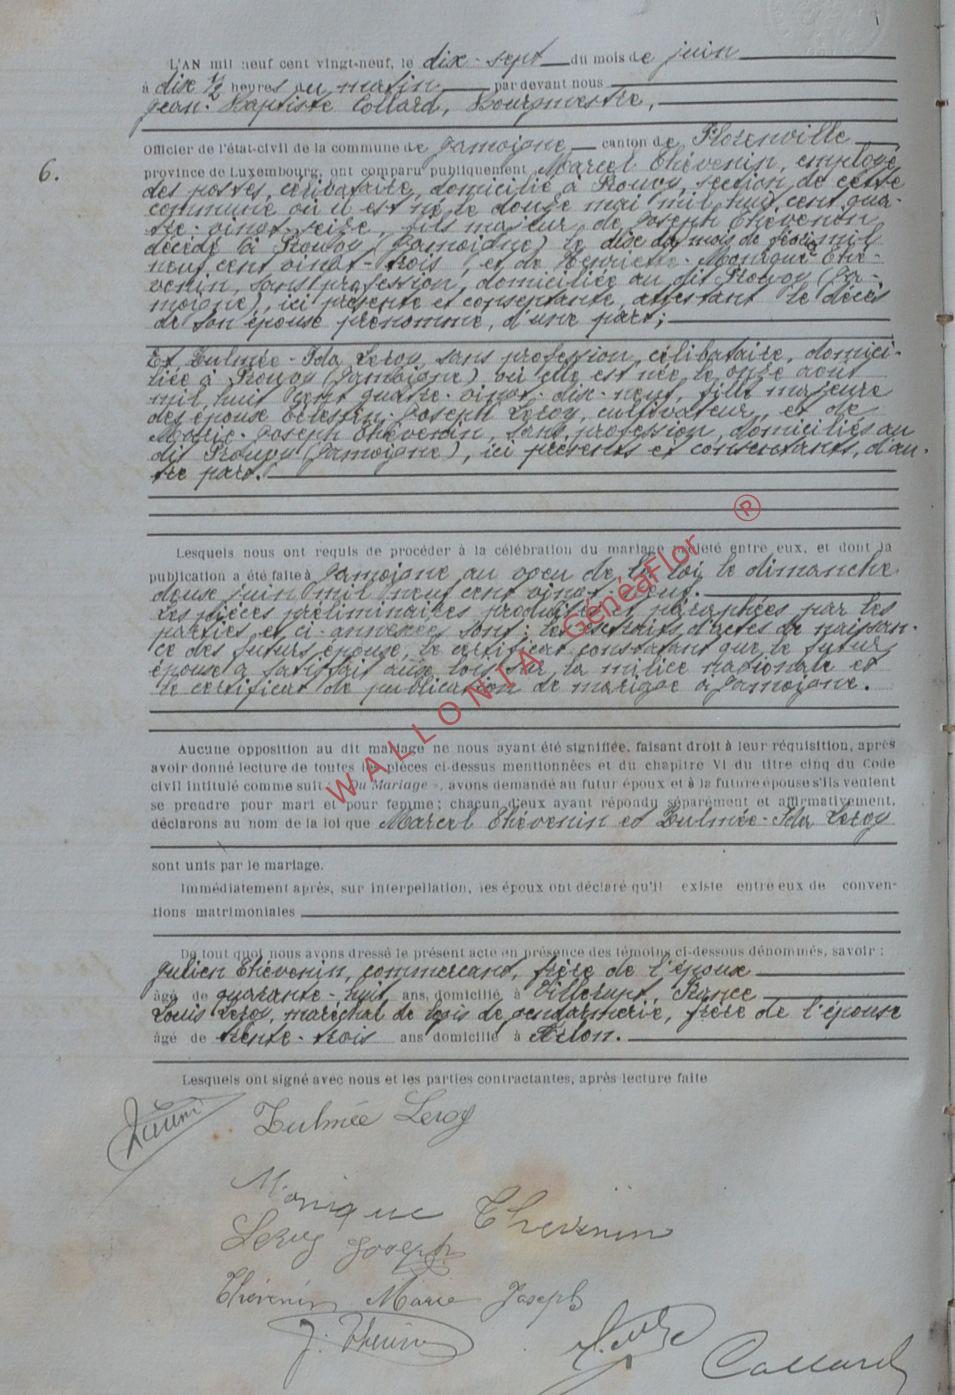 L'AN mil neuf cent vingt-neuf, le dix-sept du mois de juin
à dix ½ heures au matin par devant nous
Jean-Baptiste Collard, Bourgmestre,
Officier de l'état-civil de la commune de Jamoigne canton de Florenville
6.
province de Luxembourg, ont comparu publiquement Marcel Thévenin, employé
des postes, célibataire, domicilié à Prouvy, section de cette
commune où il est né le douze mai mil huit cent qua-
tre-vingt-seize, fils majeur de Joseph Thévenin
décédé à Prouvy (Jamoigne) le dix du mois de février mil
neuf cent vingt-trois, et de Henriette-Monique Thé-
venin, sans profession, domiciliée au dit Prouvy (Ja-
moigne), ici présente et consentante, attestant le décès
de son épouse prénommé, d'une part;
Et Zulmée-Ida Leroy, sans profession, célibataire, domici-
liée à Prouvy (Jamoigne) où elle est née le onze août
mil huit cent quatre-vingt-dix-neuf, fille majeure
des épouse Célestin-Joseph Leroy, cultivateur, et de
Marie-Joseph Thévenin, sans profession, domiciliés au
dit Prouvy (Jamoigne), ici présents et consentants, d'au-
tre part.
Lesquels nous ont requis de procéder à la célébration du mariage projeté entre eux, et dont la
publication a été faite à Jamoigne au voeu de la loi le dimanche
deux juin mil neuf cent vingt-neuf.
Les pièces préliminaires produites et paraphées par les
parties et ci-annexées sont: les extraits d'actes de naissan-
ce des futurs épouse, le certificat constatant que le futur
épouse a satisfait aux lois sur la milice nationale et
le certificat de publication de mariage à Jamoigne.
Aucune opposition au dit mariage ne nous ayant été signifiée, faisant droit à leur réquisition, après
avoir donné lecture de toutes les pièces ci-dessus mentionnées et du chapitre VI du titre cinq du Code
civil intitulé comme suit: «Du Mariage», avons demandé au futur époux et à la future épouse s'ils veulent
se prendre pour mari et pour femme; chacun d'eux ayant répondu séparément et affirmativement,
déclarons au nom de la loi que Marcel Thévenin et Zulmée-Ida Leroy
sont unis par le mariage.
Immédiatement après, sur interpellation, les époux ont déclaré qu'il existe entre eux de conven-
tions matrimoniales
De tout quoi nous avons dressé le présent acte en présence des témoins ci-dessous dénommés, savoir:
Julien Thévenin, commerçant, frère de l'époux
âgé de quarante-huit ans, domicilié à Villerupt, France
Louis Leroy, maréchal de logis de gendarmerie, frère de l'épouse
âgé de trente-trois ans domicilié à Arlon.
Lesquels ont signé avec nous et les parties contractantes, après lecture faite
Zulmée Leroy
Monique Thévenin
Leroy Joseph
Thévenin Marie Joseph
J. Thévenin
Collard
WALLONIA GénéaFlor ®